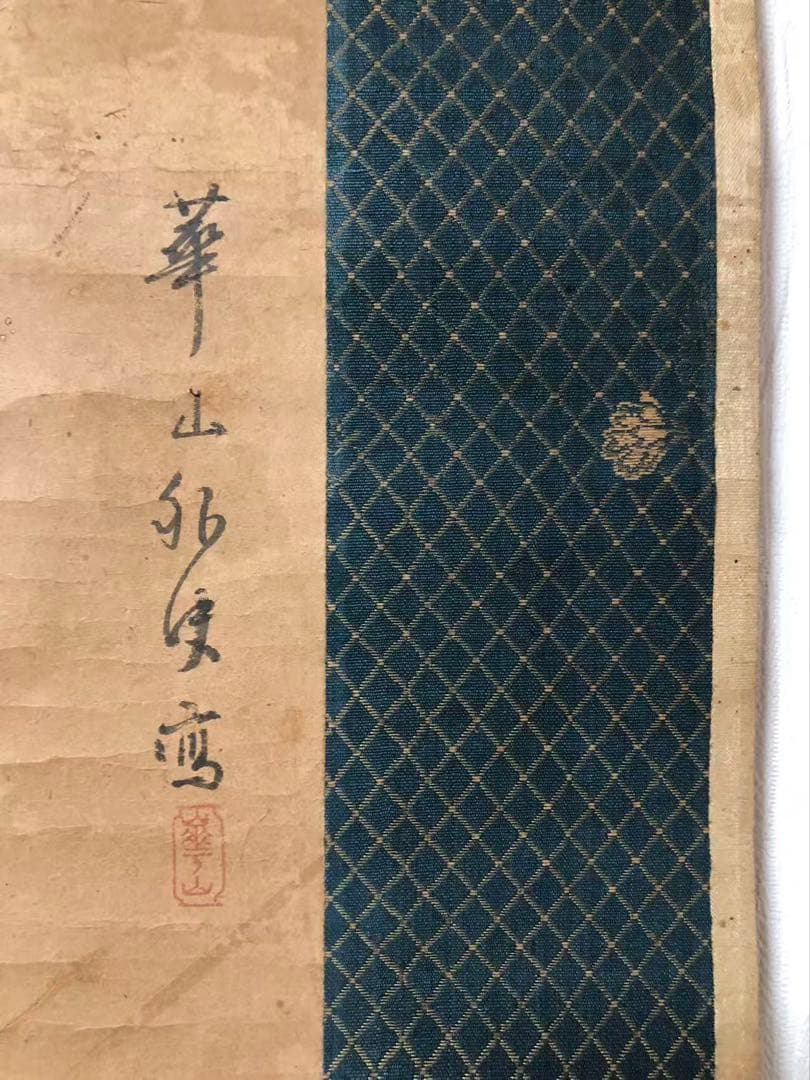 華山外史寫
崋山